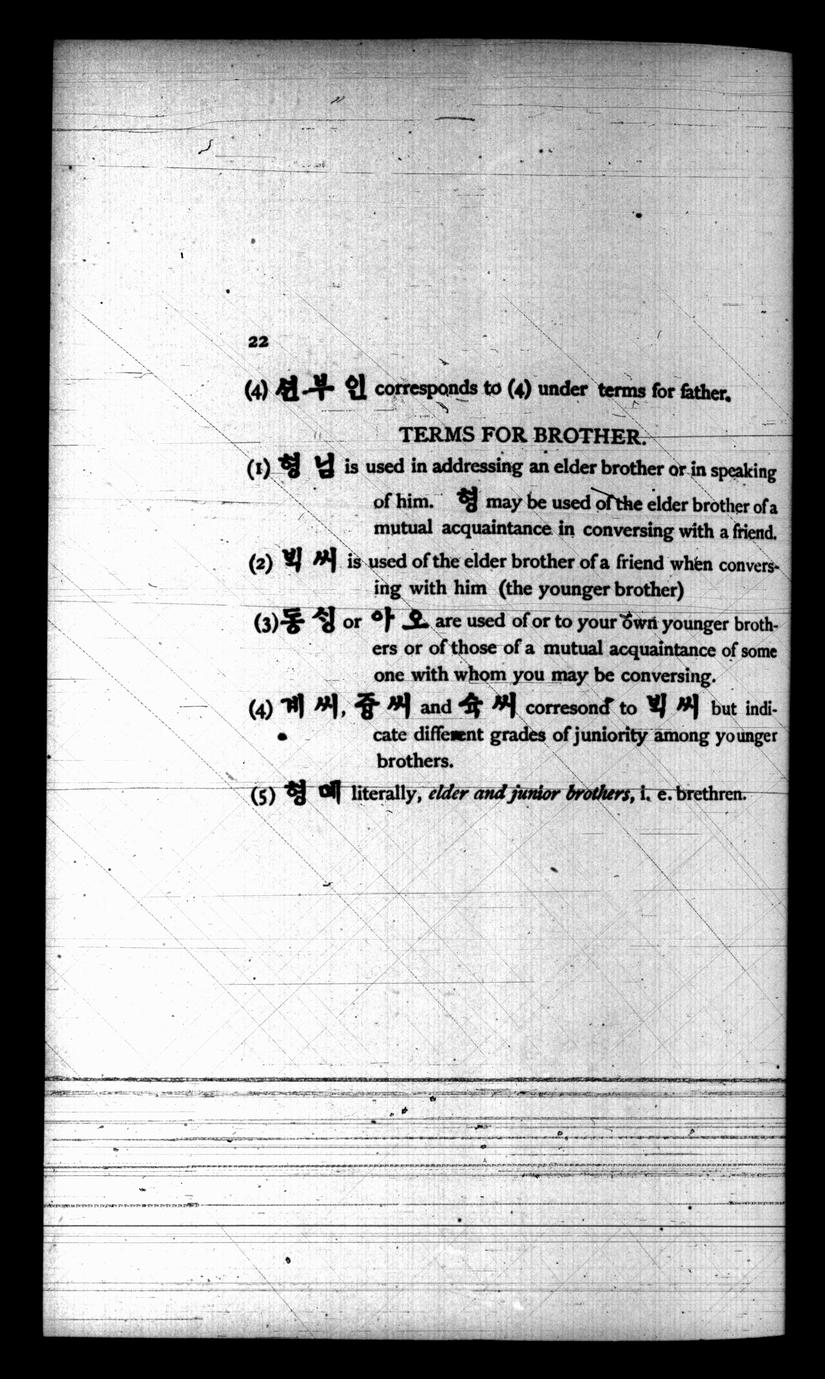 22
(4) 션부인 corresponds to (4) under terms for father.
TERMS FOR BROTHER.
(1) 형 님 is used in addressing an elder brother or in speaking
of him. 형 may be used of the elder brother of a
mutual acquaintance in conversing with a friend.
(2) 빅 씨 is used of the elder brother of a friend when convers-
ing with him (the younger brother)
(3) 동 싱 or 아 오 are used of or to your own younger broth-
ers or of those of a mutual acquaintance of some
one with whom you may be conversing.
(4) 계 씨, 즁 씨 and 슉 씨 corresond to 빅 씨 but indi-
cate different grades of juniority among younger
brothers.
(5) 형 뎨 literally, elder and junior brothers, i. e. brethren.